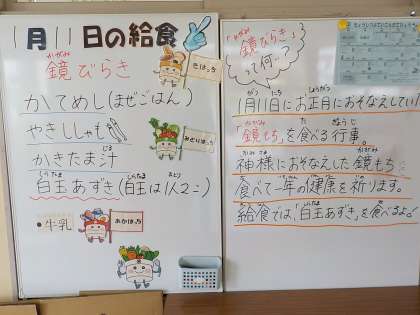 1月11日の給食
かがみ
鏡びらき
きはっち
かてめし(まぜごはん)
やきししゃも
みどりはっち
じる
かきたま汁
しらたま しらたま ひとり
白玉あずき(白玉は1人2こ)
●牛乳
あかはっち
かがみ
「鏡びらき」
って何…?
がつ にち しょうがつ
1月11日にお正月におそなえしていた
かがみ た ぎょうじ
「鏡もち」を食べる行事。
かみさま かがみ
神様におそなえした鏡もちを
た いちねん けんこう いの
食べて一年の健康を祈ります。
きゅうしょく しらたま た
給食では「白玉あずき」を食べるよ♪